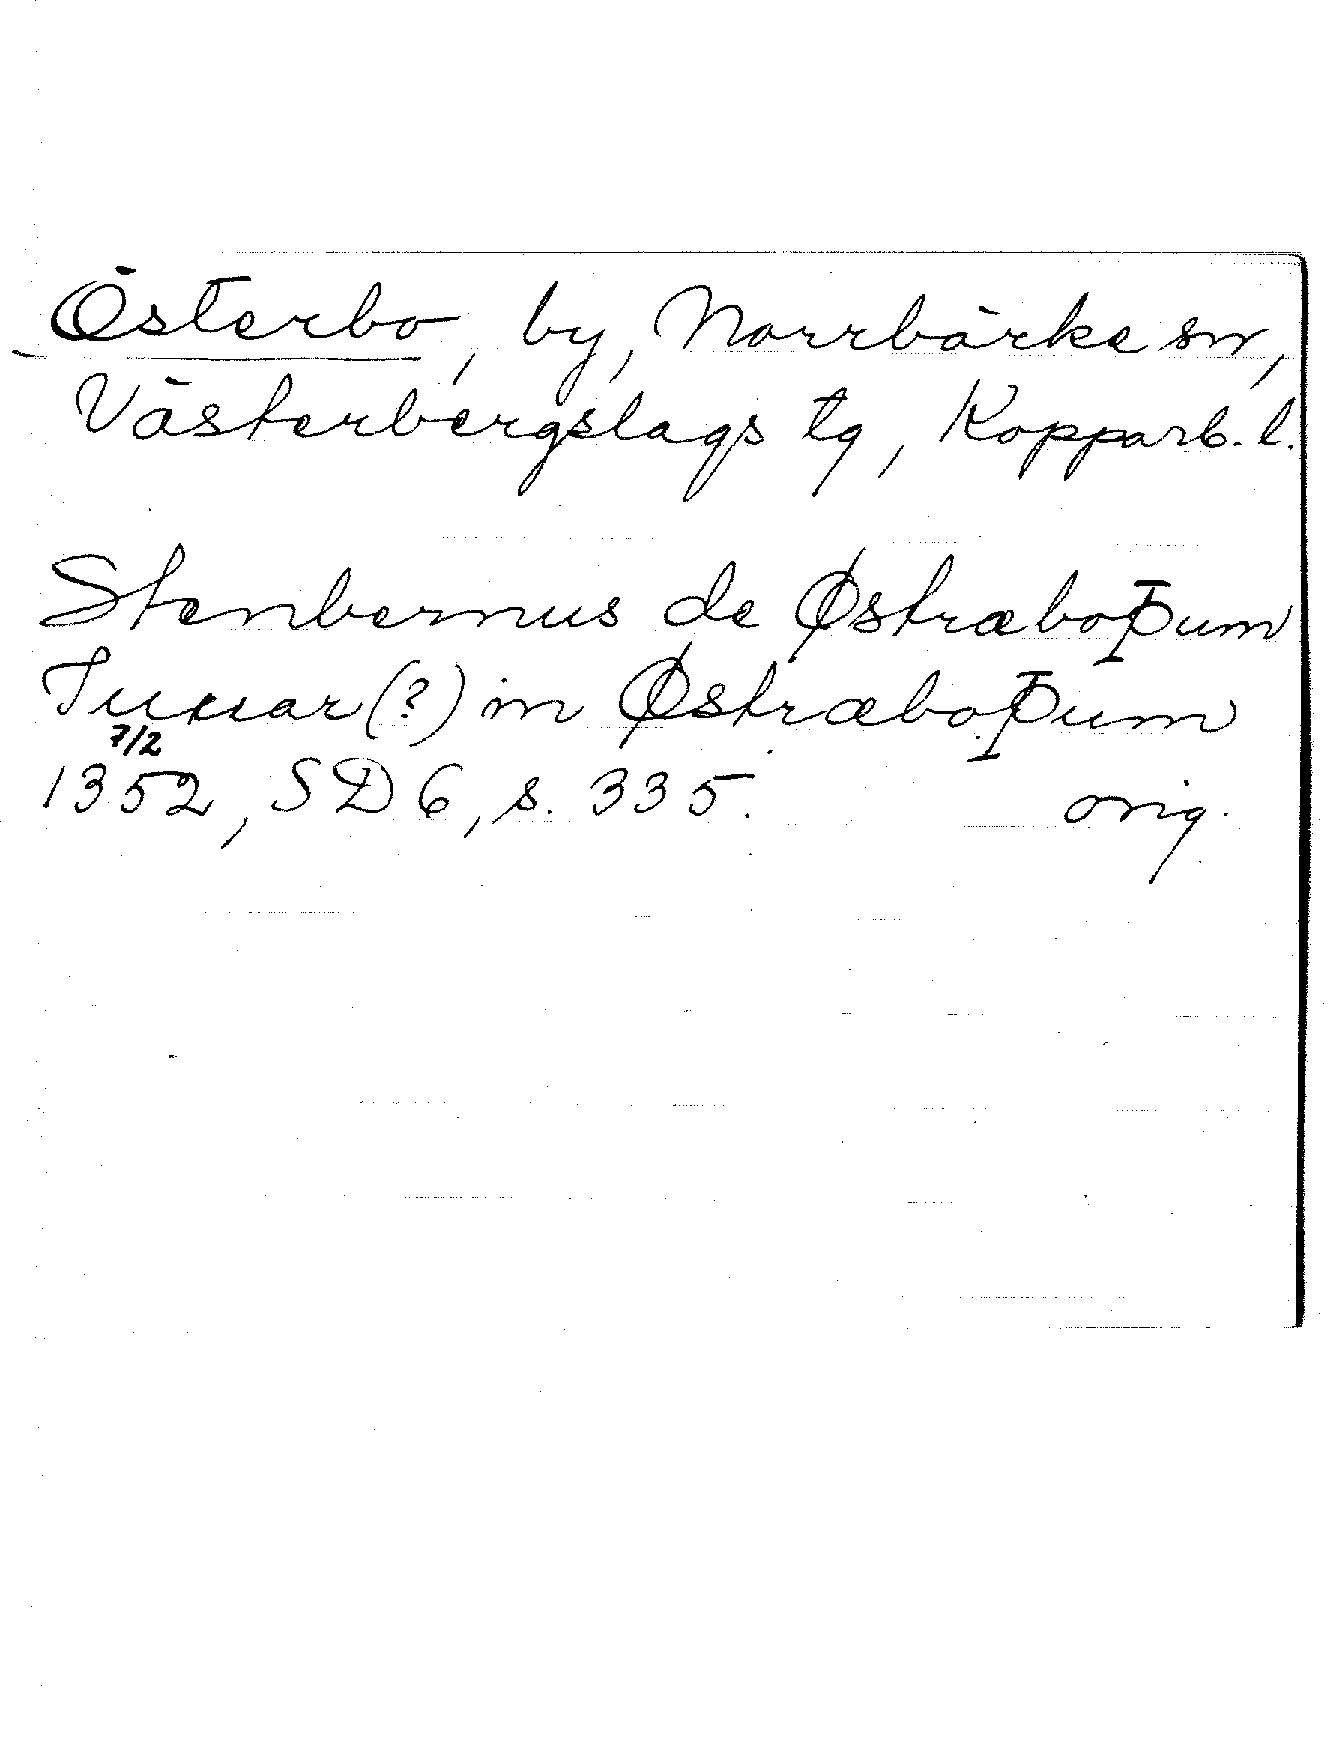 Österbo, by, Norrbärke sn,
Västerbergslags tg, Kopparb. l.
Stenbernus de ØstræboÞum
Tunnar (?) in ØstræboÞum
7/2
1352, SD 6, s. 335. orig.